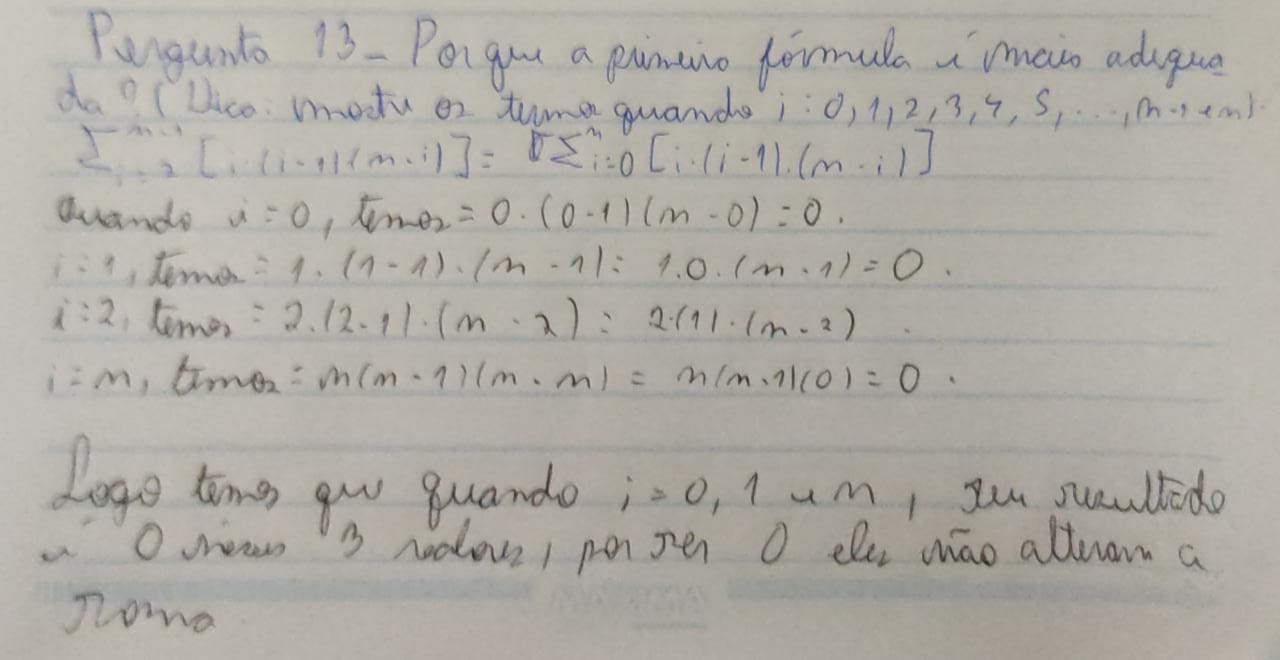 Pergunta 13 - Por que a primeira fórmula é mais adequa
da? (Dica: mostre os termos quando i: 0, 1, 2, 3, 4, 5, ..., n-1 e n).
∑ⁿ⁻¹ᵢ₌₂ [i.(i-1)(n-i)] = ∑ⁿᵢ₌₀ [i.(i-1).(n-i)]
Quando i=0, temos = 0.(0-1)(n-0) = 0.
i=1, temos = 1.(1-1).(n-1) = 1.0.(n-1) = 0.
i=2, temos = 2.(2-1).(n-2) = 2.(1).(n-2).
i=n, temos = n(n-1)(n-n) = n(n-1)(0) = 0.
Logo temos que quando i=0, 1 e n, seu resultado
é 0 nesses 3 valores, por ser 0 eles não alteram a
soma